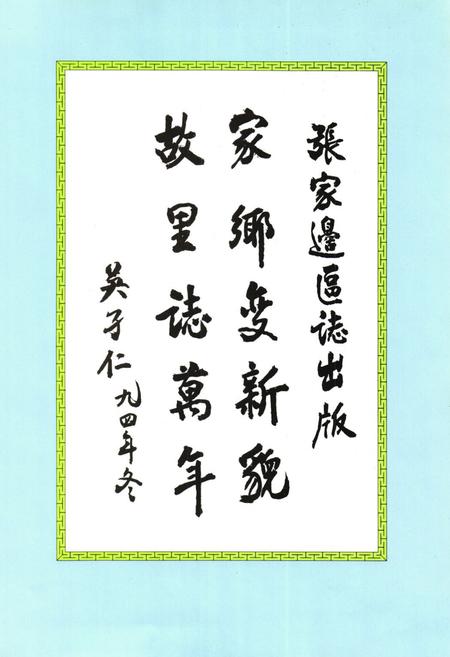 張家邊區誌出版
家鄉变新貌
故里誌萬年
吴孑仁 九四年冬